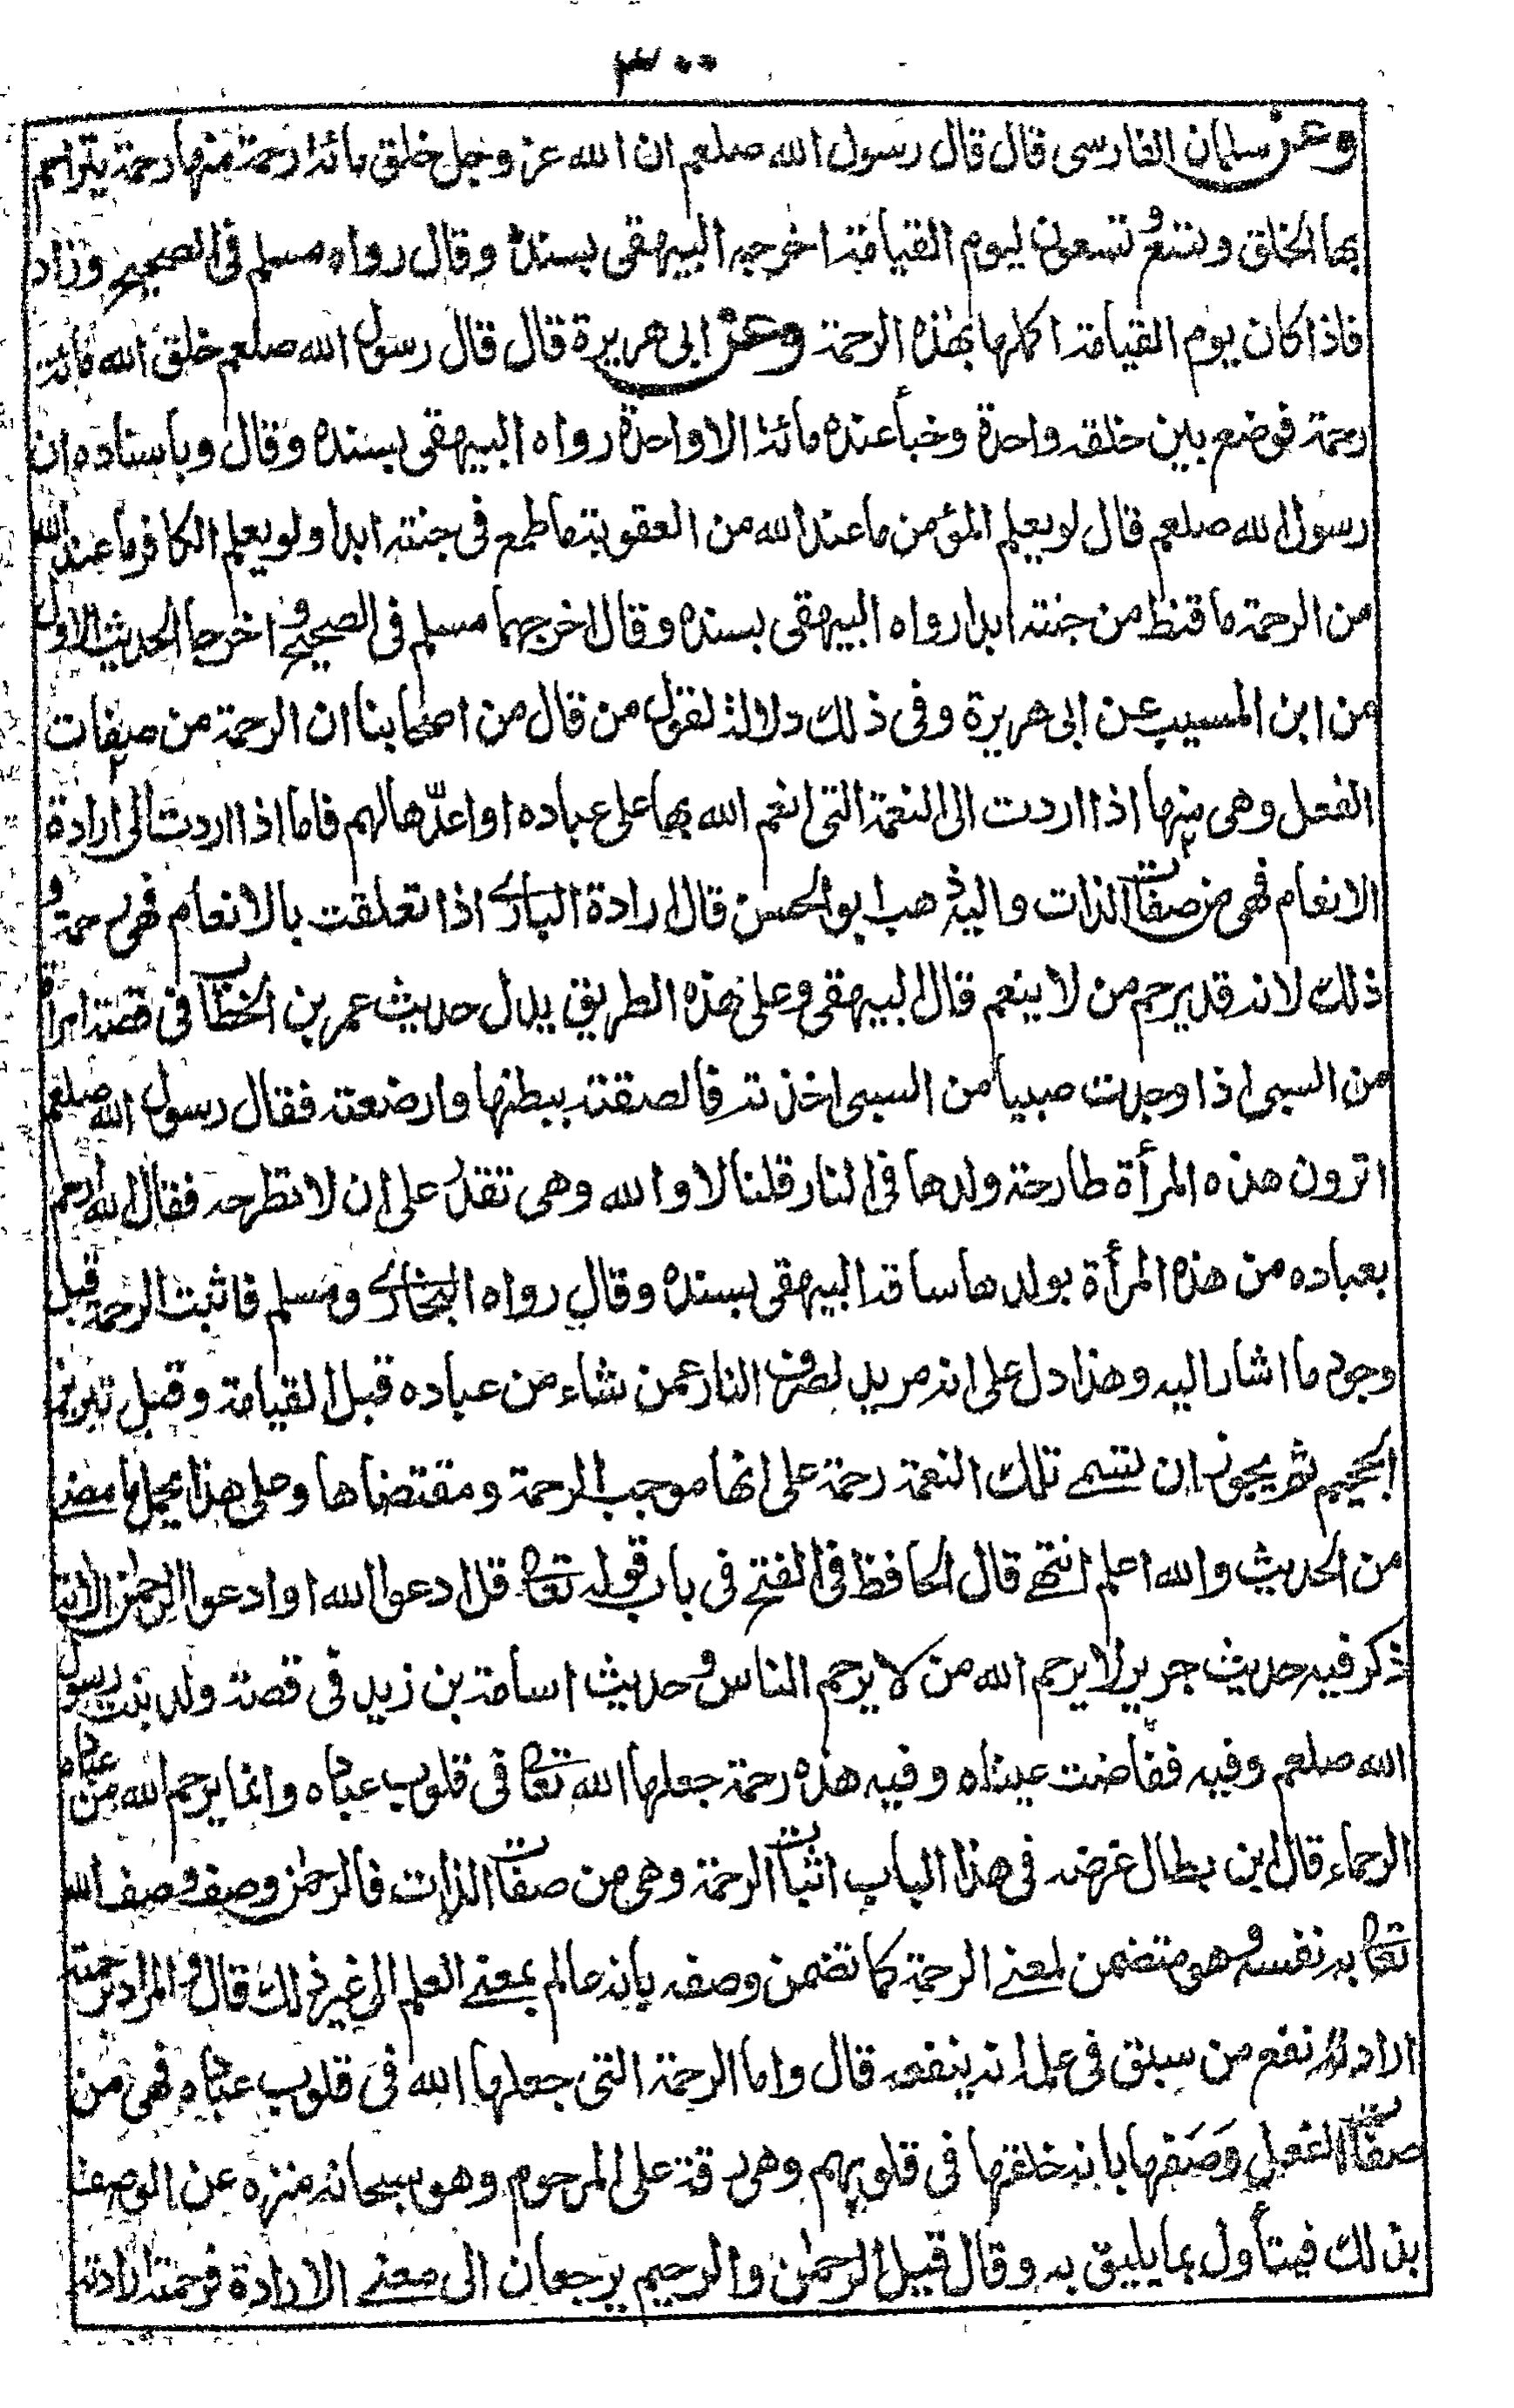 ٣٠٠
وعن سلمان الفارسى قال قال رسول الله صلعم ان الله عز وجل خلق مائة رحمة منها رحمة يتراحم
بها الخلق وتسع وتسعون ليوم القيامة اخرجه البيهقى بسنده وقال رواه مسلم فى الصحيح وزاد
فاذا كان يوم القيامة اكملها بهذه الرحمة وعن ابى هريرة قال قال رسول الله صلعم خلق الله مائة
رحمة فوضع بين خلقه واحدة وخبأ عنده مائة الا واحدة رواه البيهقى بسنده وقال وباسناده ان
رسول الله صلعم قال لو يعلم المؤمن ما عند الله من العقوبة ما طمع فى جنته ابدا ولو يعلم الكافر ما عند الله
من الرحمة ما قنط من جنته ابدا رواه البيهقى بسنده وقال اخرجهما مسلم فى الصحيح واخرجا الحديث الاول
من ابن المسيب عن ابى هريرة وفى ذلك دلالة لقول من قال من اصحابنا ان الرحمة من صفات
الفعل وهى منها اذا اردت الى النعمة التى انعم الله بها على عباده او اعدّها لهم فاما اذا اردت الى ارادة
الانعام فهى من صفات الذات واليه ذهب ابو الحسن قال ارادة البارى اذا تعلقت بالانعام فهى رحمة و
ذلك لانه قد يرحم من لا ينعم قال البيهقى وعلى هذه الطريق يدل حديث عمر بن الخطاب فى قصة امرأة
من السبى اذا وجدت صبيا من السبى اخذته فالصقته ببطنها وارضعته فقال رسول الله صلعم
اترون هذه المرأة طارحة ولدها فى النار قلنا لا والله وهى تقدر على ان لا تطرحه فقال الله ارحم
بعباده من هذه المرأة بولدها ساقه البيهقى بسنده وقال رواه البخارى ومسلم فاثبت الرحمة قبل
وجود ما اشار اليه وهذا دل على انه مريد لصرف النار عمن شاء من عباده قبل القيامة وقبل تبريز
الجحيم ثم يجوز ان تسمى تلك النعمة رحمة على انها موجب الرحمة ومقتضاها وعلى هذا يحمل ما مضى
من الحديث والله اعلم انتهى قال الحافظ فى الفتح فى باب قوله تعالى قل ادعوا الله او ادعوا الرحمن الآية
ذكر فيه حديث جرير لا يرحم الله من لا يرحم الناس وحديث اسامة بن زيد فى قصة ولد بنت رسول
الله صلعم وفيه ففاضت عيناه وفيه هذه رحمة جعلها الله تعالى فى قلوب عباده وانما يرحم الله من عباده
الرحماء قال ابن بطال غرضه فى هذا الباب اثبات الرحمة وهى من صفات الذات فالرحمن وصف وصف الله
تعالى به نفسه وهو متضمن لمعنى الرحمة كما تضمن وصفه بانه عالم بمعنى العلم الى غير ذلك قال والمراد برحمته
ارادته نفع من سبق فى علمه انه ينفعه قال واما الرحمة التى جعلها الله فى قلوب عباده فهى من
صفات الفعل وَصَفها بانه خلقها فى قلوبهم وهى رقة على المرحوم وهو سبحانه منزه عن الوصف
بذلك فيتأول بما يليق به وقال قيل الرحمن والرحيم يرجعان الى معنى الارادة فرحمته ارادته